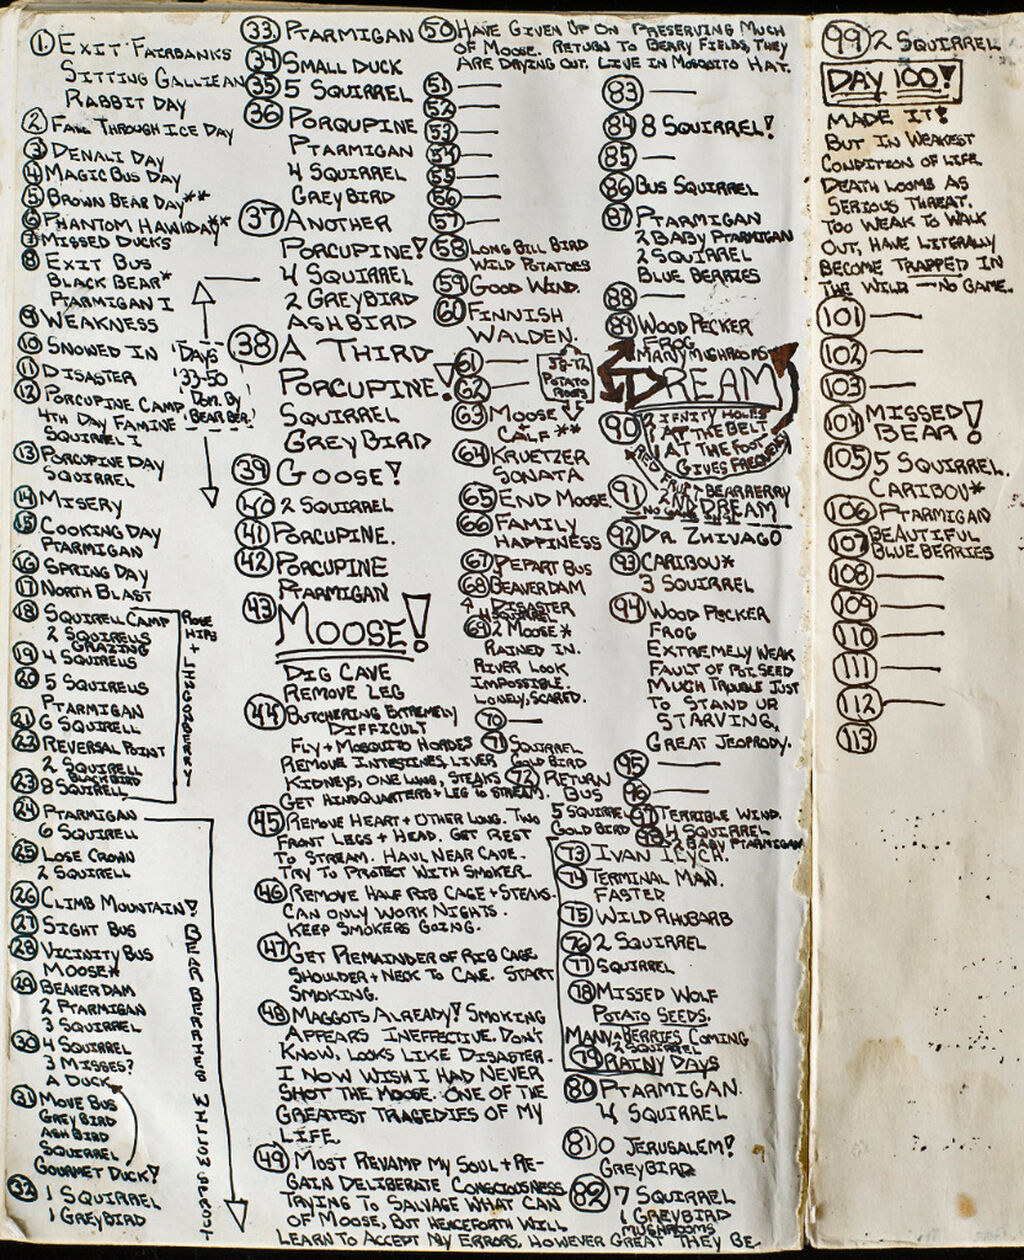 1. EXIT FAIRBANKS
SITTING GALLIEAN
RABBIT DAY
2 FALL THROUGH ICE DAY
3 DENALI DAY
4 MAGIC BUS DAY
5 BROWN BEAR DAY**
6 PHANTOM DAY**
7 MISSED DUCKS
8 EXIT BUS
BLACK BEAR*
PTARMIGAN 1
9 WEAKNESS
10 SNOWED IN
11 DISASTER
12 PORCUPINE CAMP
4TH DAY FAMINE
SQUIRREL 1
13 PORCUPINE DAY
SQUIRREL
14 MISERY
15 COOKING DAY
PTARMIGAN
16 SPRING DAY
17 NORTH BLAST
18 SQUIRRELL CAMP
2 SQUIRELS
GRAZING
19 4 SQUIRELLS
20 5 SQUIRELLS
PTARMIGAN
21 6 SQUIRELL
22 REVERSAL POINT
2 SQUIRELL
BLACKBIRD
23 8 SQUIRELL
ROSE HIPS + LINGONBERRY
24 PTARMIGAN
6 SQUIRELL
25 LOSE CROWN
2 SQUIRELL
26 CLIMB MOUNTAIN!
27 SIGHT BUS
28 VICINITY BUS
MOOSE*
29 BEAVER DAM
2 PTARMIGAN
3 SQUIRREL
30 4 SQUIRREL
3 MISSES?
A DUCK
31 MOVE BUS
GREY BIRD
ASH BIRD
SQUIRREL
GOURMET DUCK!
32 1 SQUIRREL
1 GREYBIRD
BEAR BERRIES WILLOW
DAYS
33-50
DOM. BY
BEAR BER.
33. PTARMIGAN
34 SMALL DUCK
35 5 SQUIRREL
36 PORQUPINE
PTARMIGAN
4 SQUIRREL
GREY BIRD
37 ANOTHER
PORCUPINE!
4 SQUIRREL
2 GREYBIRD
ASHBIRD
38 A THIRD
PORCUPINE!
SQUIRREL
GREY BIRD
39 GOOSE!
40 2 SQUIRREL
41 PORCUPINE.
42 PORCUPINE
PTARMIGAN
43 MOOSE!
DIG CAVE
REMOVE LEG
44 BUTCHERING EXTREMELY
DIFFICULT
FLY + MOSQUITO HORDES
REMOVE INTESTINES, LIVER
KIDNEYS, ONE LUNG, STEAKS
GET HINDQUARTERS + LEG TO STREAM.
45 REMOVE HEART + OTHER LUNG. TWO
FRONT LEGS + HEAD. GET REST
TO STREAM. HAUL NEAR CAVE.
TRY TO PROTECT WITH SMOKER.
46 REMOVE HALF RIB CAGE + STEAKS.
CAN ONLY WORK NIGHTS.
KEEP SMOKERS GOING.
47 GET REMAINDER OF RIB CAGE
SHOULDER + NECK TO CAVE. START
SMOKING.
48 MAGGOTS ALREADY! SMOKING
APPEARS INEFFECTIVE. DON'T
KNOW, LOOKS LIKE DISASTER.
I NOW WISH I HAD NEVER
SHOT THE MOOSE. ONE OF THE
GREATEST TRAGEDIES OF MY
LIFE.
49 MOST REVAMP MY SOUL + RE-
GAIN DELIBERATE CONSCIOUSNESS
TRYING TO SALVAGE WHAT CAN
OF MOOSE, BUT HENCEFORTH WILL
LEARN TO ACCEPT MY ERRORS, HOWEVER GREAT THEY BE.
50 HAVE GIVEN UP ON PRESERVING MUCH
OF MOOSE. RETURN TO BERRY FIELDS, THEY
ARE DRYING OUT. LIVE IN MOSQUITO HAT.
51 —
52 —
53 —
54 —
55 —
56 —
57 —
58 LONG BILL BIRD
WILD POTATOES
59 GOOD WIND.
60 FINNISH
WALDEN.
61 —
62 —
POTATO
ROOTS
63 MOOSE
CALF**
64 KRUETZER
SONATA
65 END MOOSE.
66 FAMILY
HAPPINESS
67 DEPART BUS
68 BEAVERDAM
DISASTER
4 SQUIRREL
69 2 MOOSE*
RAINED IN.
RIVER LOOK
IMPOSSIBLE.
LONELY, SCARED.
70 —
71 SQUIRREL
GOLD BIRD
72 RETURN
BUS
5 SQUIRREL
GOLD BIRD
73 IVAN ILYCH.
74 TERMINAL MAN.
FASTER
75 WILD RHUBARB
76 2 SQUIRREL
77 SQUIRREL
78 MISSED WOLF
POTATO SEEDS.
MANY BERRIES COMING
SQUIRREL
79 RAINY DAYS
80 PTARMIGAN.
4 SQUIRREL
81 O JERUSALEM!
GREYBIRD
82 7 SQUIRREL
1 GREYBIRD
MUSHROOMS
83 —
84 8 SQUIRREL!
85 —
86 BUS SQUIRREL
87 PTARMIGAN
2 BABY PTARMIGAN
2 SQUIRREL
BLUE BERRIES
88 —
89 WOOD PECKER
FROG
MANY MUSHROOMS
DREAM
90 2 IFNITY HOLES
AT THE BELT
AT THE FOOT
GIVES FREQUENCY
91 BEARBERRY
2ND DREAM
92 DR. ZHIVAGO
93 CARIBOU*
3 SQUIRREL
94 WOOD PECKER
FROG
EXTREMELY WEAK
FAULT OF POT. SEED
MUCH TROUBLE JUST
TO STAND UP
STARVING.
GREAT JEOPRODY.
95 —
96 —
97 TERRIBLE WIND.
98 4 SQUIRREL
2 BABY PTARMIGAN
99 2 SQUIRREL
DAY 100!
MADE IT!
BUT IN WEAKEST
CONDITION OF LIFE
DEATH LOOMS AS
SERIOUS THREAT.
TOO WEAK TO WALK
OUT, HAVE LITERALLY
BECOME TRAPPED IN
THE WILD — NO GAME.
101 —
102 —
103 —
104 MISSED
BEAR!
105 5 SQUIRREL.
CARIBOU*
106 PTARMIGAN
107 BEAUTIFUL
BLUE BERRIES
108 —
109 —
110 —
111 —
112 —
113